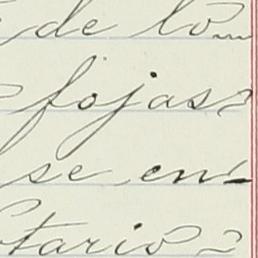 de lo
fojas
se en-
tario